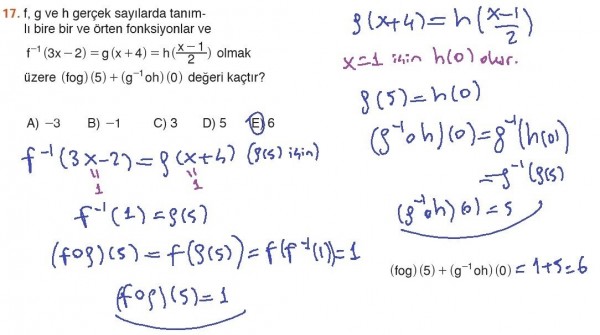 17. f, g ve h gerçek sayılarda tanım-
lı bire bir ve örten fonksiyonlar ve
f⁻¹(3x−2) = g(x+4) = h(x−1/2) olmak
üzere (fog)(5)+(g⁻¹oh)(0) değeri kaçtır?
A) −3 B) −1 C) 3 D) 5 E) 6
f⁻¹(3x−2) = g(x+4) (g(5) için)
1 1
f⁻¹(1) = g(5)
(fog)(5) = f(g(5)) = f(f⁻¹(1)) = 1
(fog)(5) = 1
g(x+4) = h(x−1/2)
x=1 için h(0) olur.
g(5) = h(0)
(g⁻¹oh)(0) = g⁻¹(h(0)
= g⁻¹(g(5)
(g⁻¹oh)(0) = 5
(fog)(5)+(g⁻¹oh)(0) = 1+5=6